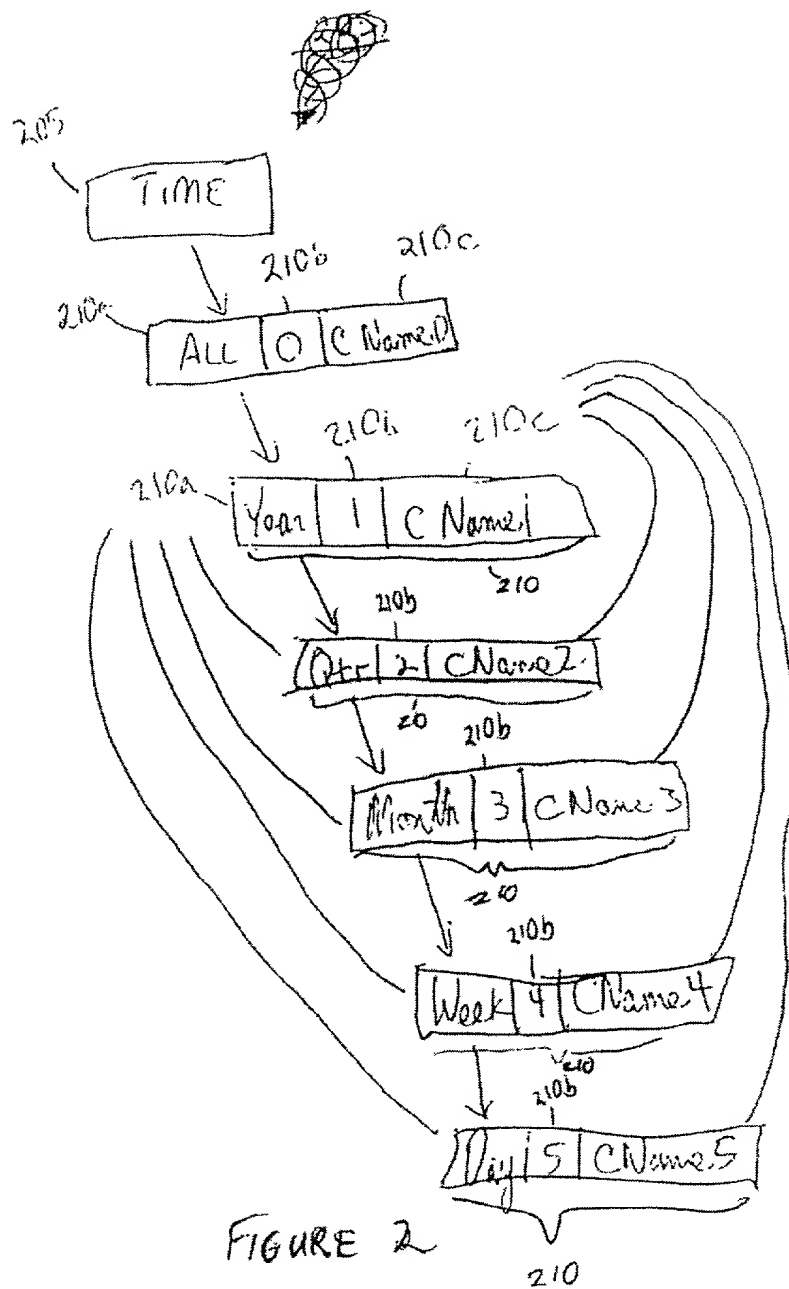 205
TIME
210b 210c
210a
ALL 0 C Name.0
210b 210c
210a
Year 1 C Name.1
210
210b
Qtr 2 CName2.
20
210b
Month 3 CName 3
210
210b
Week 4 CName.4
210
210b
Day 5 CName.5
FIGURE 2
210